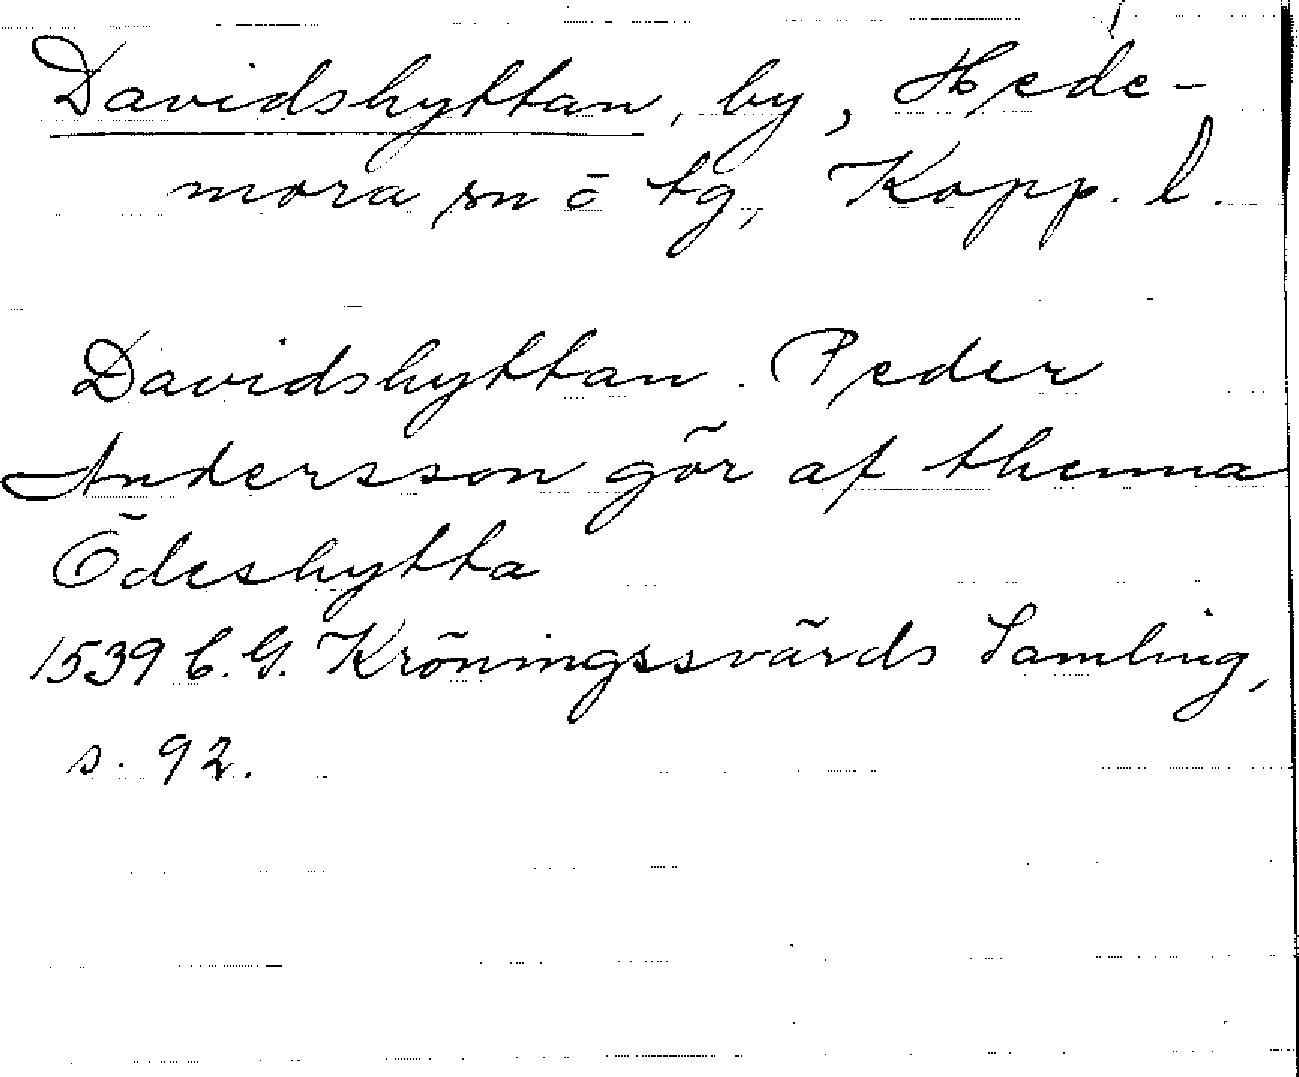 Davidshyttan, by, Hede-
mora sn o tg, Kopp. l.
Davidshyttan. Peder
Andersson gör af thenna
Ödeshytta
1539 C. G. Kröningssvärds Samling,
s. 92.